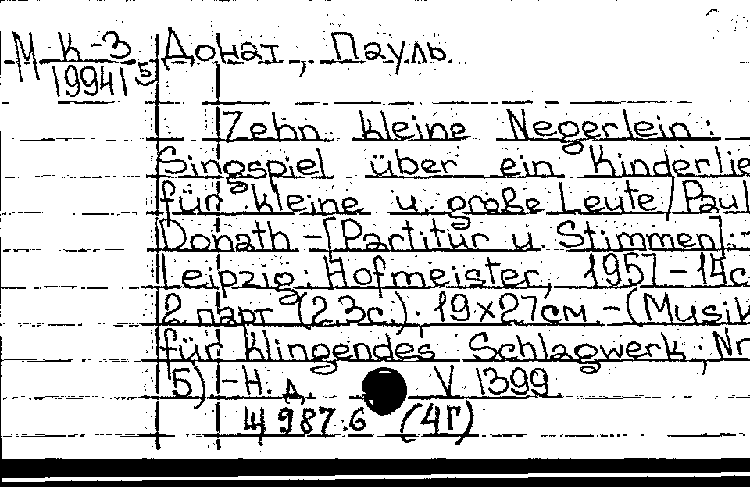 М К-3 Донат, Пауль.
19941 5
Zehn kleine Negerlein:
Singspiel über ein Kinderlie
für kleine u. große Leute / Paul
Donath – [Partitur u. Stimmen]. –
Leipzig: Hofmeister, 1957 – 14с
2 парт (23с.). 19×27см – (Musik
für klingendes Schlagwerk; Nr
5) – Н. д. V 1399.
Щ 987.6 (4Г)